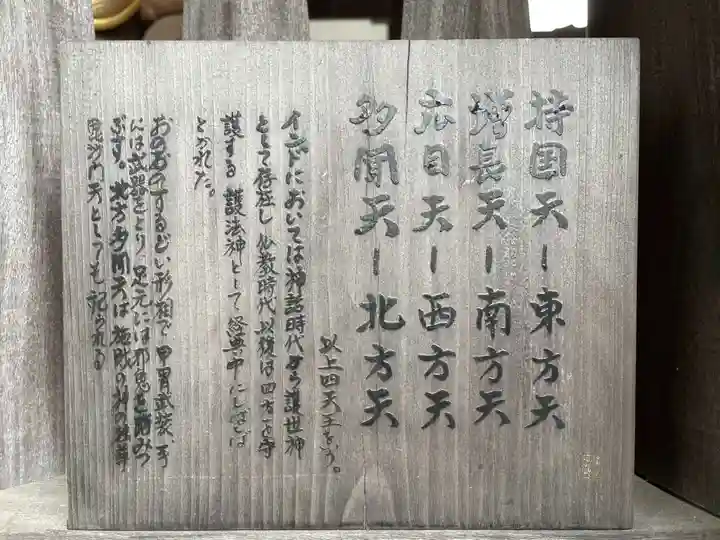 持国天ー東方天
増長天ー南方天
広目天ー西方天
多聞天ー北方天
以上四天王をいう。
インドにおいては神話時代から護世神
として存在し仏教時代以後は四方を守
護する護法神として経典中にしばしば
とかれた。
おのおのするどい形相で甲冑武装、手
には武器をとり、足元には邪鬼を踏みつ
ぶす。地方多聞天は施財の神の
毘沙門天としても祀られる